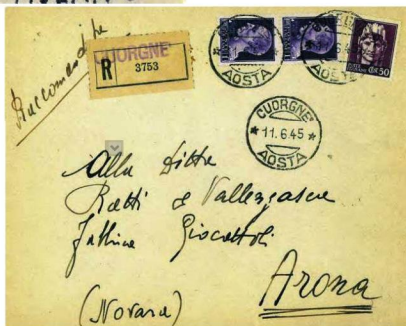 Raccomandata
CUORGNÈ
R 3753
AOSTA
AOSTA
CENT. 50
CUORGNÈ
* 11.6.45 *
AOSTA
Alla Ditta
Ratti e Vallezzasca
Fabbrica Giocattoli
Arona
(Novara)